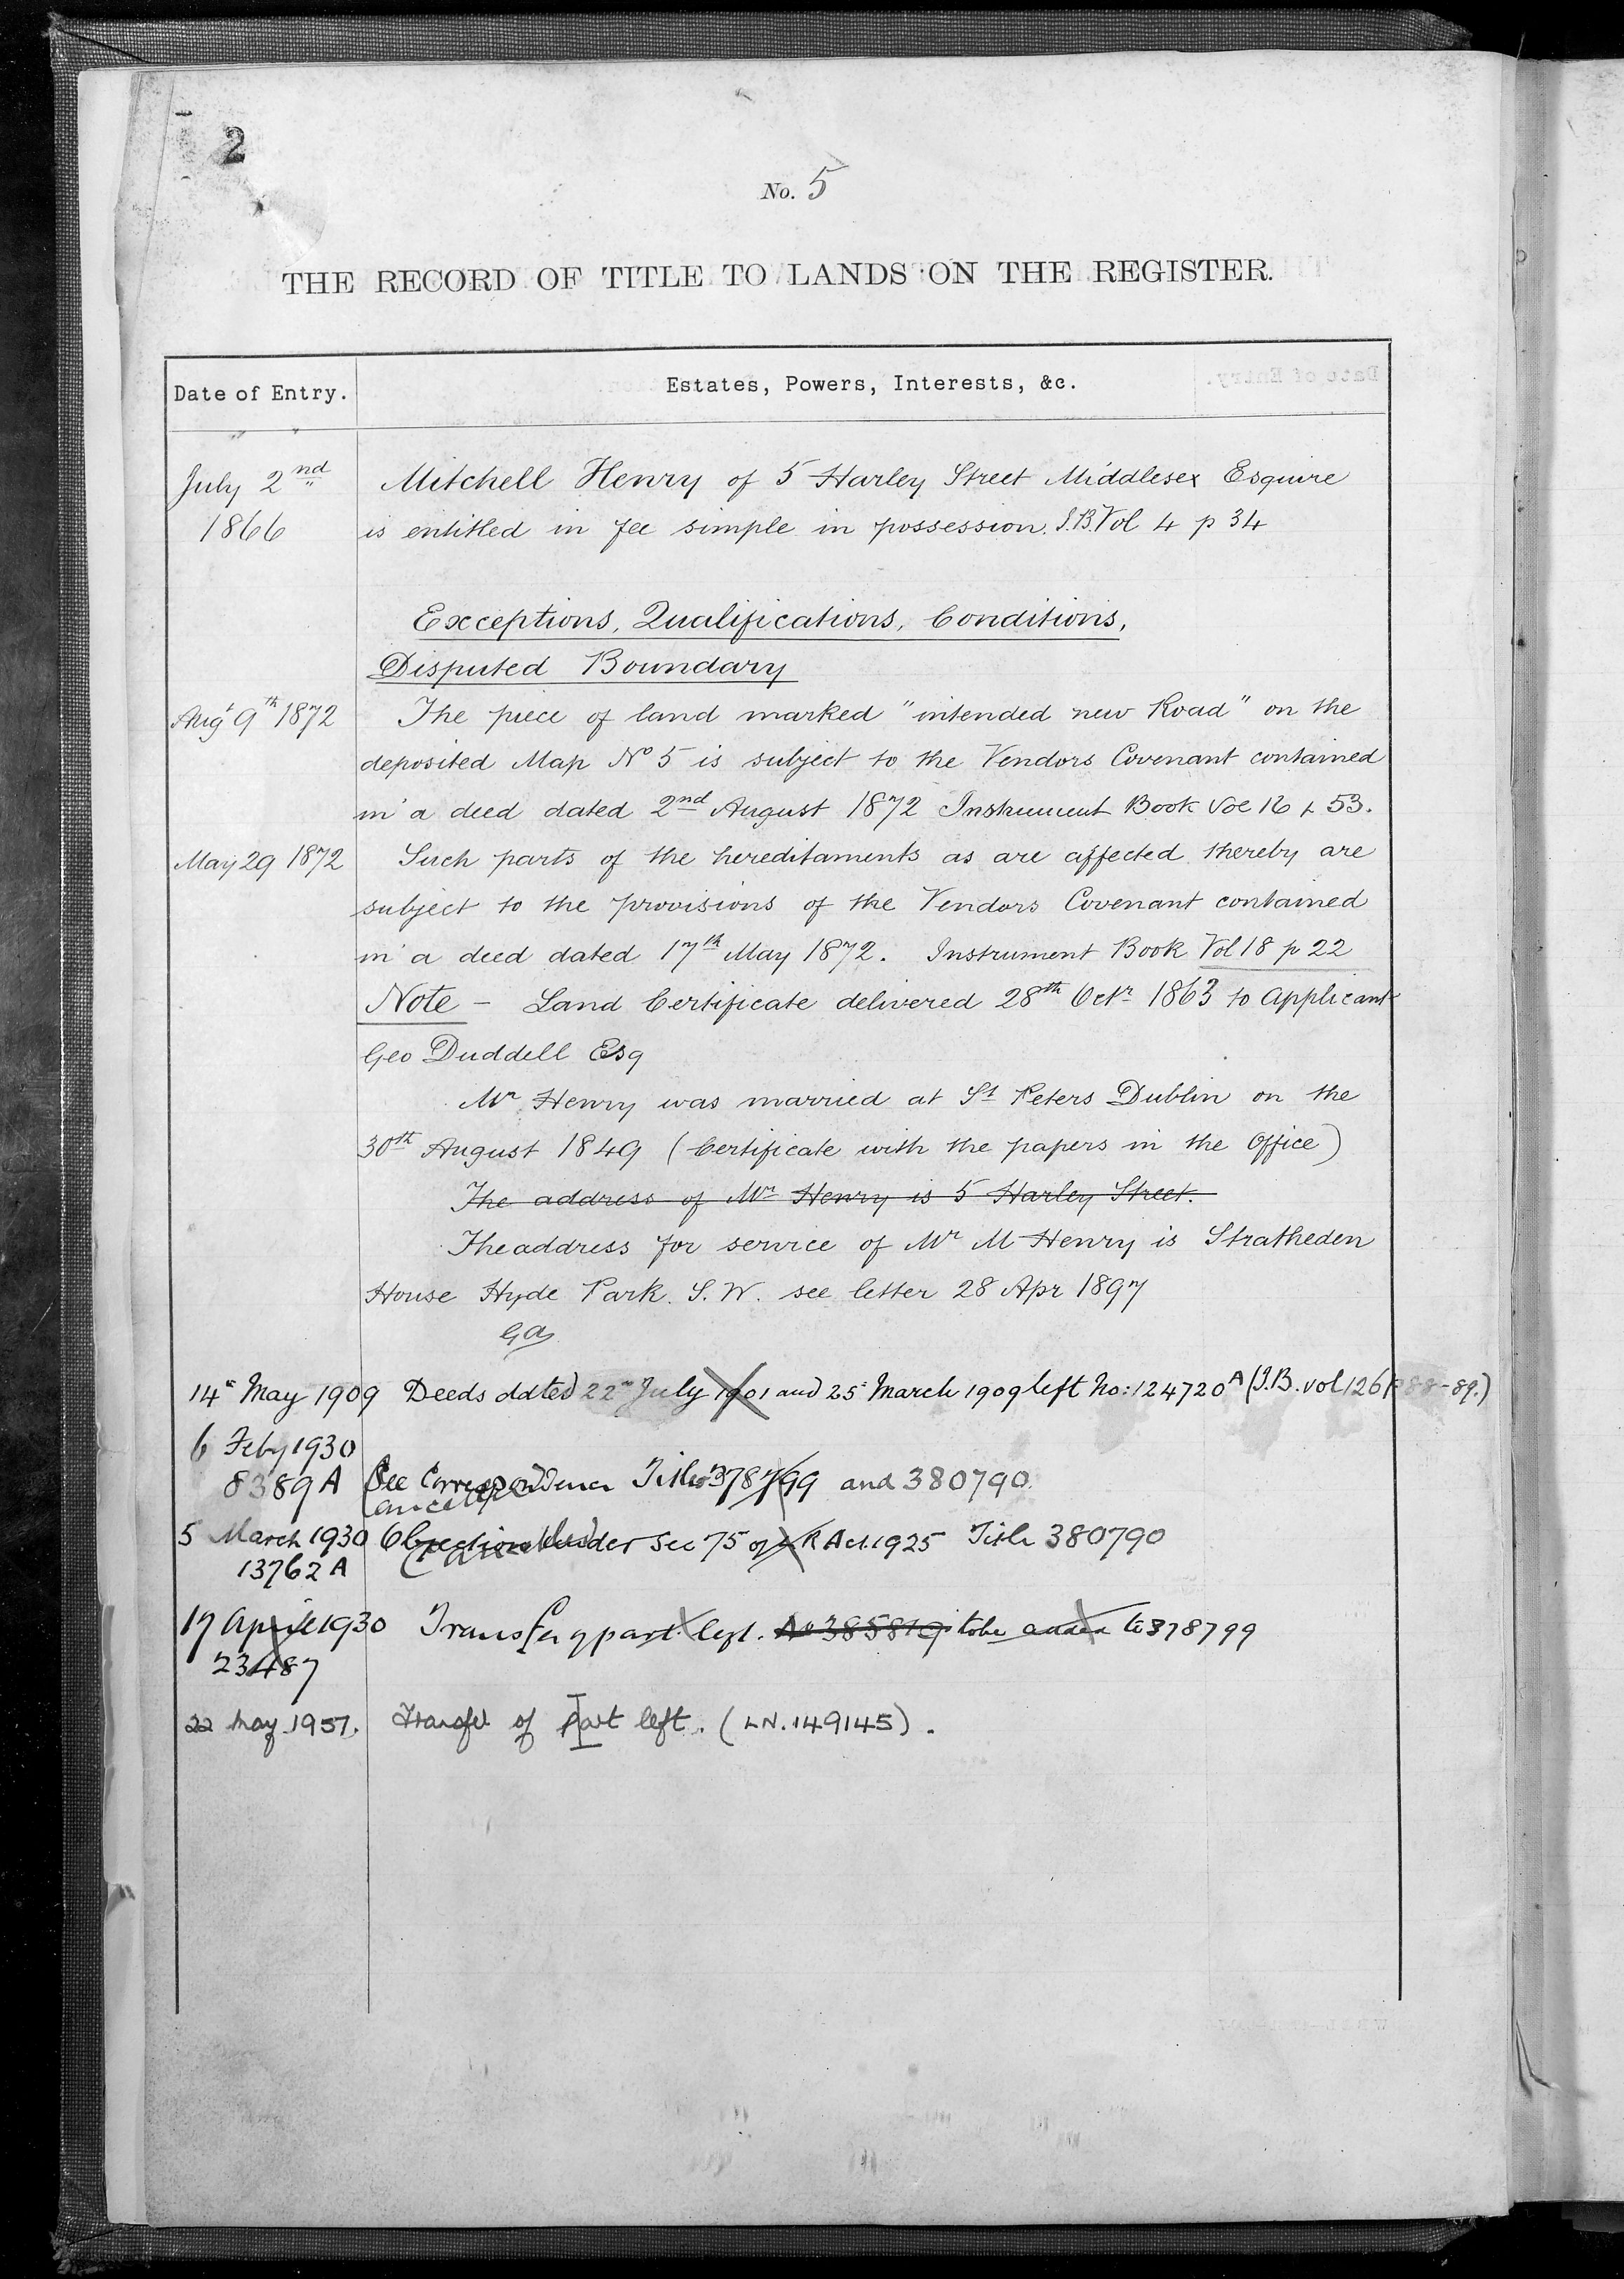 2
No. 5
THE RECORD OF TITLE TO LANDS ON THE REGISTER.
Date of Entry. Estates, Powers, Interests, &c.
July 2nd Mitchell Henry of 5 Harley Street Middlesex Esquire
1866 is entitled in fee simple in possession. I.B. Vol 4 p 34
Exceptions, Qualifications, Conditions,
Disputed Boundary
Augt 9th 1872 The piece of land marked "intended new Road" on the
deposited Map No 5 is subject to the Vendors Covenant contained
in a deed dated 2nd August 1872 Instrument Book Vol 16 p 53.
May 29 1872 Such parts of the hereditaments as are affected thereby are
subject to the provisions of the Vendors Covenant contained
in a deed dated 17th May 1872. Instrument Book Vol 18 p 22
Note - Land Certificate delivered 28th Octr 1863 to Applicant
Geo Duddell Esq
Mr Henry was married at St Peters Dublin on the
30th August 1849 (Certificate with the papers in the Office)
The address of Mr Henry is 5 Harley Street.
The address for service of Mr M Henry is Stratheden
House Hyde Park. S.W. see letter 28 Apr 1897
14th May 1909 Deeds dated 22nd July 1901 and 25th March 1909 left No: 124720A (I.B. vol 126 p 88-89.)
6 Feby 1930
8389 A See Correspondence Titles 378799 and 380790
Cancelled
5 March 1930 Objection under Sec 75 of L R Act 1925 Title 380790
13762 A Cancelled
17 April 1930 Transfer of part left. No 385819 to be added to 378799
23487
22 May 1957. Transfer of Part left. (LN. 149145).